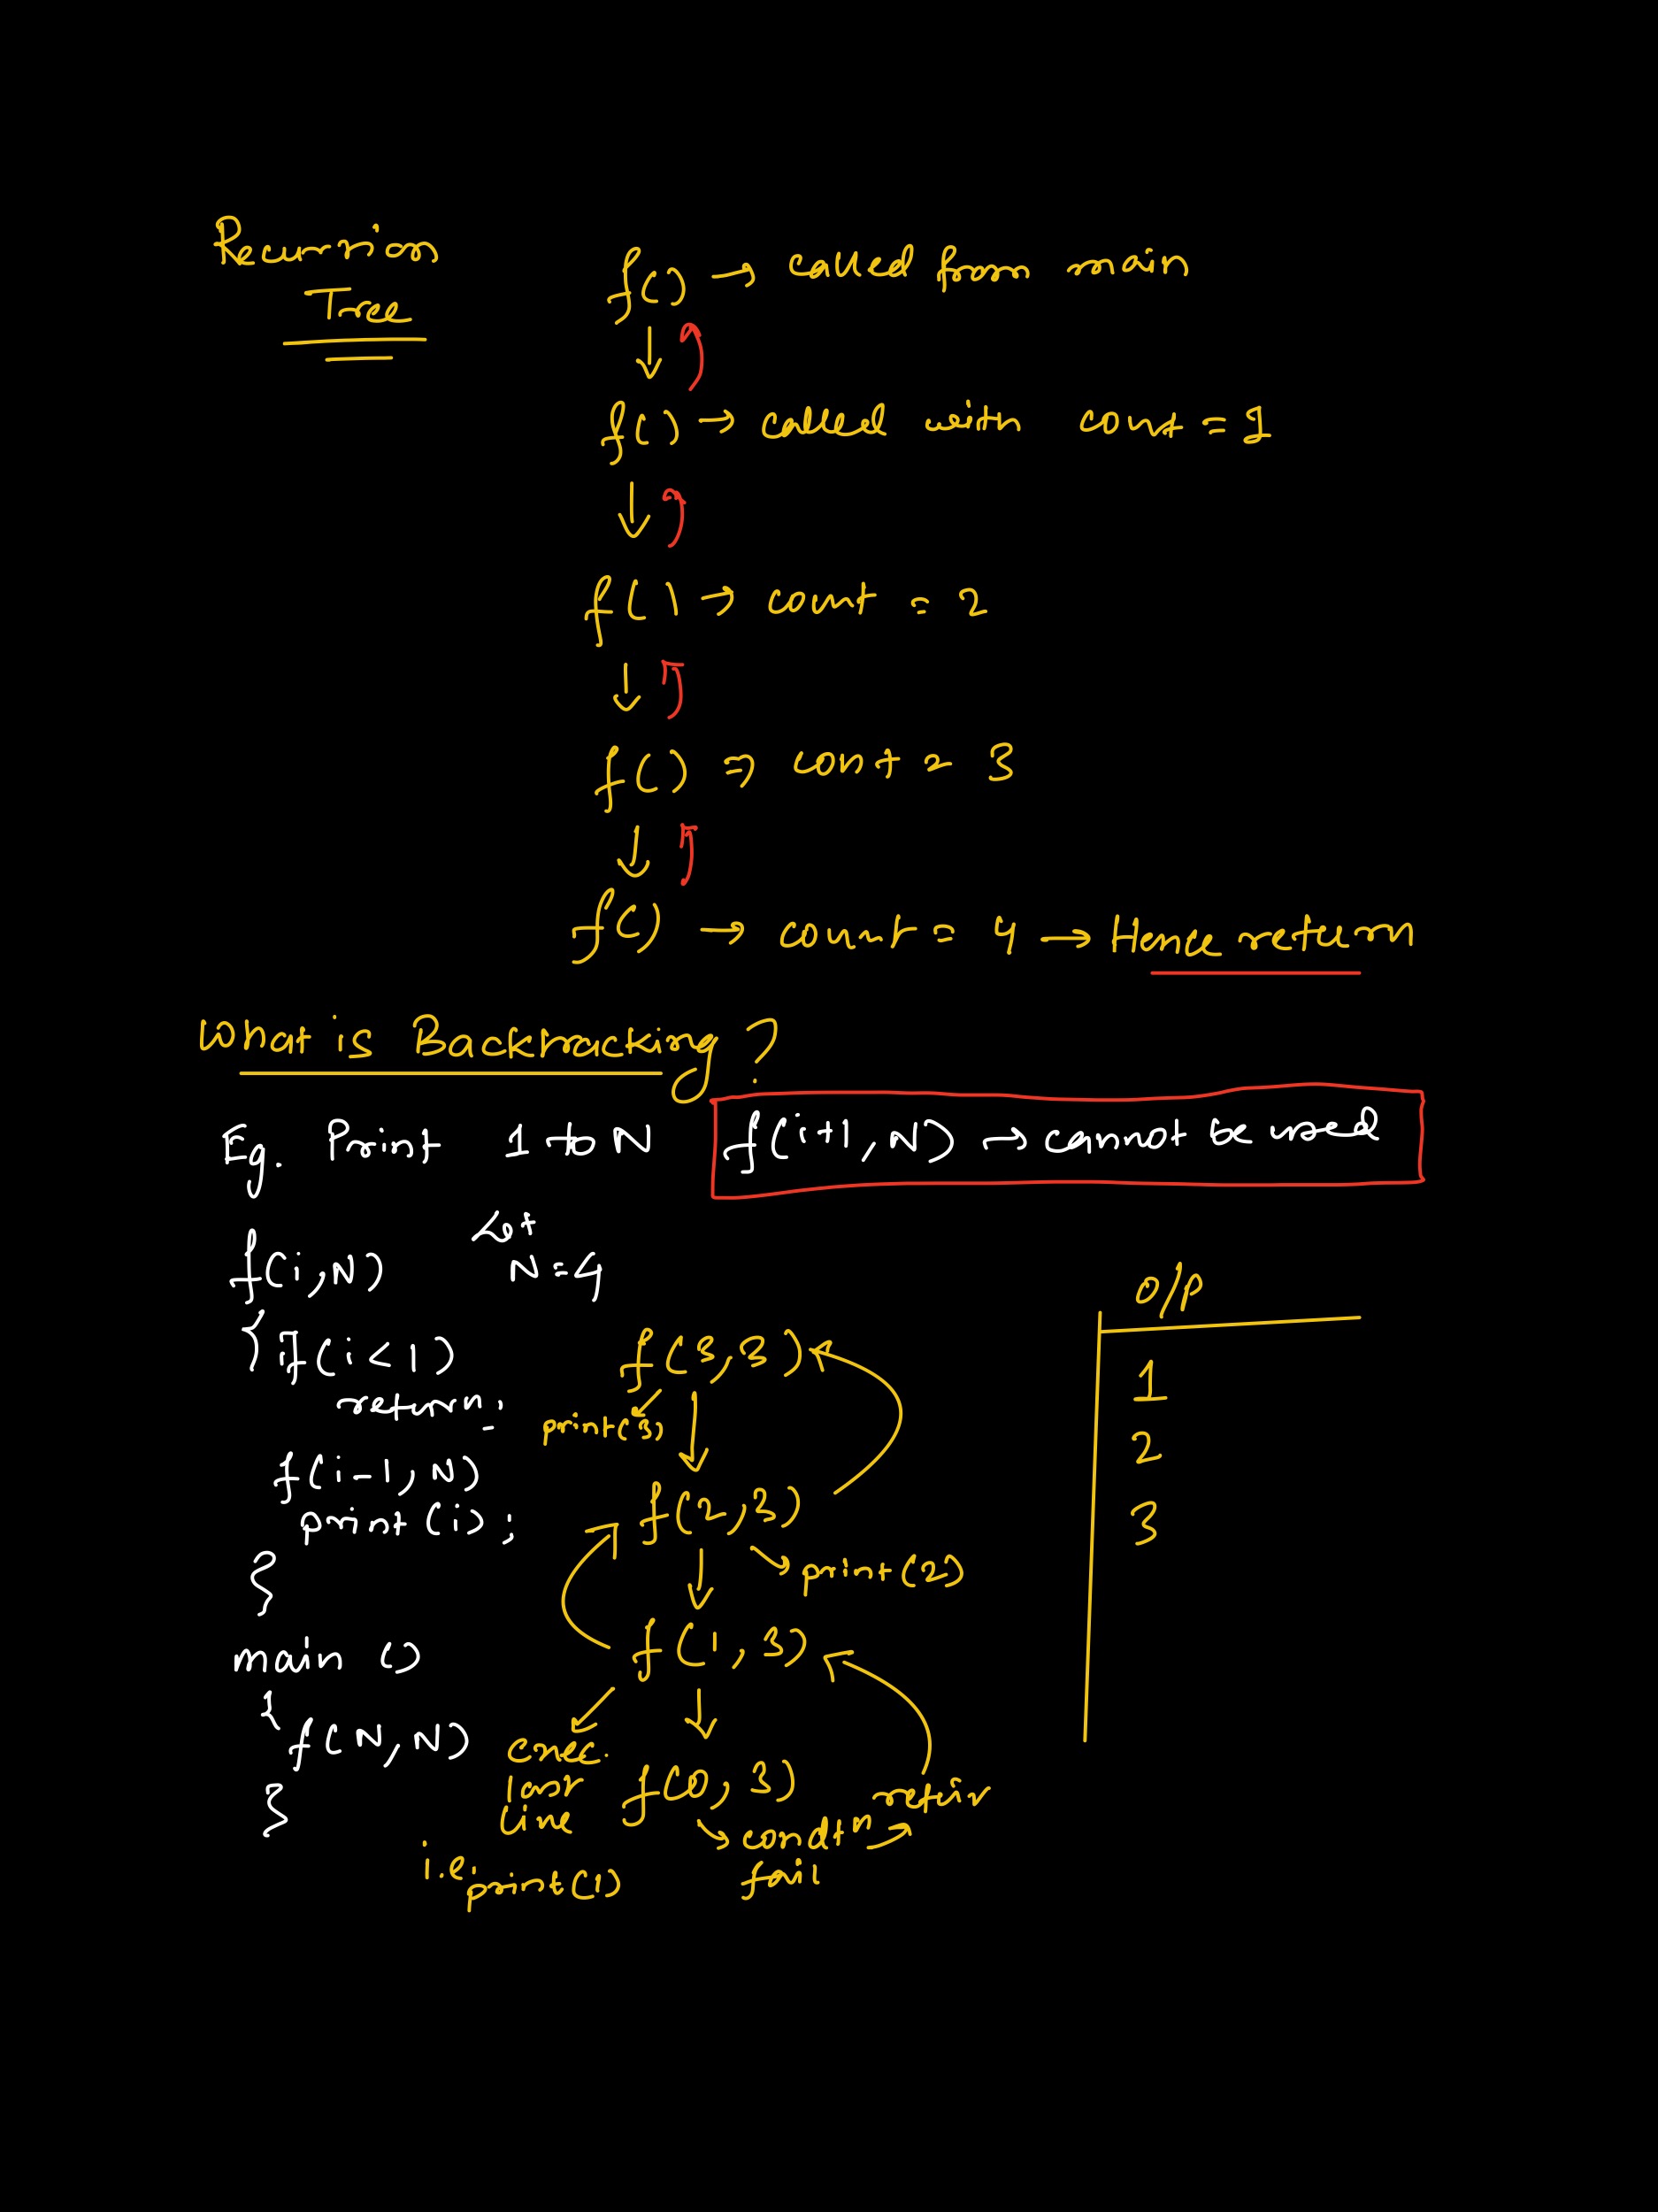 Recursion
Tree
f() → called from main
f() → called with cont = 1
f() → count = 2
f() ⇒ cont = 3
f() → count = 4 → Hence return
What is Backtracking ?
Eg. Print 1 to N
f(i+1, N) → cannot be used
f(i,N)
Let
N=4
{ if(i<1)
return;
f(i-1, N)
print(i);
}
main ()
{
f(N,N)
}
f(3,3)
print(3)
f(2,3)
print(2)
f(1,3)
exec.
last
line
i.e. print(1)
f(0,3)
condtⁿ
fail
O/P
1
2
3